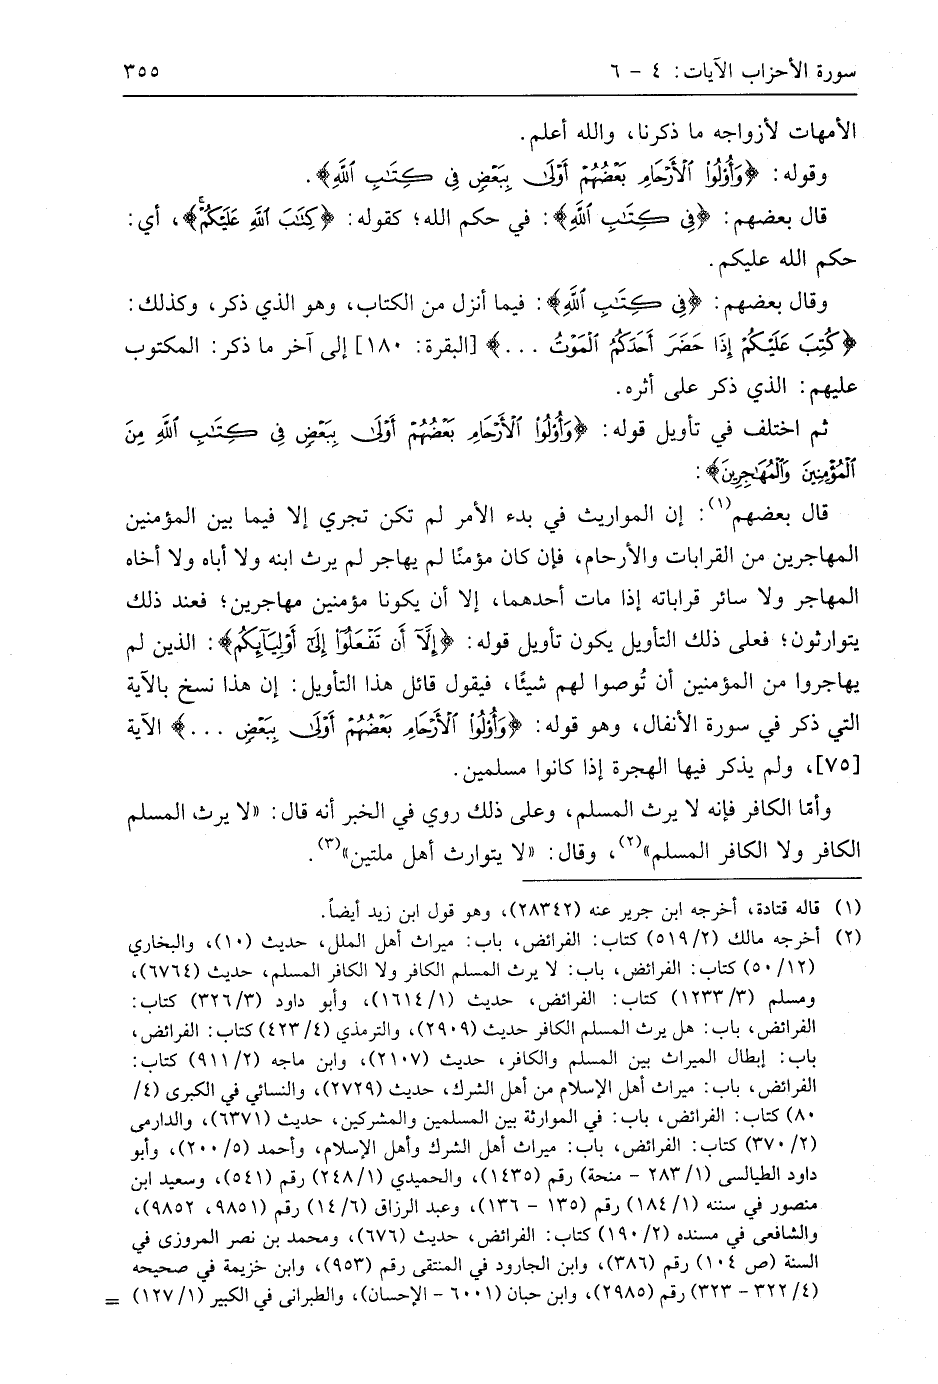 سورة الأحزاب الآيات: ٤ - ٦ ٣٥٥
الأمهات لأزواجه ما ذكرنا، والله أعلم.
وقوله: ﴿وَأُوْلُواْ ٱلْأَرْحَامِ بَعْضُهُمْ أَوْلَىٰ بِبَعْضٍ فِي كِتَٰبِ ٱللَّهِ﴾.
قال بعضهم: ﴿فِي كِتَٰبِ ٱللَّهِ﴾: في حكم الله؛ كقوله: ﴿كِتَٰبَ ٱللَّهِ عَلَيْكُمْۚ﴾، أي:
حكم الله عليكم.
وقال بعضهم: ﴿فِي كِتَٰبِ ٱللَّهِ﴾: فيما أنزل من الكتاب، وهو الذي ذكر، وكذلك:
﴿كُتِبَ عَلَيْكُمْ إِذَا حَضَرَ أَحَدَكُمُ ٱلْمَوْتُ ...﴾ [البقرة: ١٨٠] إلى آخر ما ذكر: المكتوب
عليهم: الذي ذكر على أثره.
ثم اختلف في تأويل قوله: ﴿وَأُوْلُواْ ٱلْأَرْحَامِ بَعْضُهُمْ أَوْلَىٰ بِبَعْضٍ فِي كِتَٰبِ ٱللَّهِ مِنَ
ٱلْمُؤْمِنِينَ وَٱلْمُهَٰجِرِينَ﴾:
قال بعضهم(١): إن المواريث في بدء الأمر لم تكن تجري إلا فيما بين المؤمنين
المهاجرين من القرابات والأرحام، فإن كان مؤمنًا لم يهاجر لم يرث ابنه ولا أباه ولا أخاه
المهاجر ولا سائر قراباته إذا مات أحدهما، إلا أن يكونا مؤمنين مهاجرين؛ فعند ذلك
يتوارثون؛ فعلى ذلك التأويل يكون تأويل قوله: ﴿إِلَّآ أَن تَفْعَلُوٓاْ إِلَىٰٓ أَوْلِيَآئِكُم﴾: الذين لم
يهاجروا من المؤمنين أن تُوصوا لهم شيئًا، فيقول قائل هذا التأويل: إن هذا نسخ بالآية
التي ذكر في سورة الأنفال، وهو قوله: ﴿وَأُوْلُواْ ٱلْأَرْحَامِ بَعْضُهُمْ أَوْلَىٰ بِبَعْضٍ ...﴾ الآية
[٧٥]، ولم يذكر فيها الهجرة إذا كانوا مسلمين.
وأمّا الكافر فإنه لا يرث المسلم، وعلى ذلك روي في الخبر أنه قال: «لا يرث المسلم
الكافر ولا الكافر المسلم»(٢)، وقال: «لا يتوارث أهل ملتين»(٣).
(١) قاله قتادة، أخرجه ابن جرير عنه (٢٨٣٤٢)، وهو قول ابن زيد أيضاً.
(٢) أخرجه مالك (٥١٩/٢) كتاب: الفرائض، باب: ميراث أهل الملل، حديث (١٠)، والبخاري
(٥٠/١٢) كتاب: الفرائض، باب: لا يرث المسلم الكافر ولا الكافر المسلم، حديث (٦٧٦٤)،
ومسلم (١٢٣٣/٣) كتاب: الفرائض، حديث (١٦١٤/١)، وأبو داود (٣٢٦/٣) كتاب:
الفرائض، باب: هل يرث المسلم الكافر حديث (٢٩٠٩)، والترمذي (٤٢٣/٤) كتاب: الفرائض،
باب: إبطال الميراث بين المسلم والكافر، حديث (٢١٠٧)، وابن ماجه (٩١١/٢) كتاب:
الفرائض، باب: ميراث أهل الإسلام من أهل الشرك، حديث (٢٧٢٩)، والنسائي في الكبرى (٤/
٨٠) كتاب: الفرائض، باب: في الموارثة بين المسلمين والمشركين، حديث (٦٣٧١)، والدارمى
(٣٧٠/٢) كتاب: الفرائض، باب: ميراث أهل الشرك وأهل الإسلام، وأحمد (٢٠٠/٥)، وأبو
داود الطيالسى (٢٨٣/١ - منحة) رقم (١٤٣٥)، والحميدي (٢٤٨/١) رقم (٥٤١)، وسعيد ابن
منصور في سننه (١٨٤/١) رقم (١٣٥ - ١٣٦)، وعبد الرزاق (١٤/٦) رقم (٩٨٥١، ٩٨٥٢)،
والشافعى في مسنده (١٩٠/٢) كتاب: الفرائض، حديث (٦٧٦)، ومحمد بن نصر المروزى في
السنة (ص ١٠٤) رقم (٣٨٦)، وابن الجارود في المنتقى رقم (٩٥٣)، وابن خزيمة في صحيحه
(٣٢٢/٤ - ٣٢٣) رقم (٢٩٨٥)، وابن حبان (٦٠٠١ - الإحسان)، والطبرانى في الكبير (١٢٧/١) =